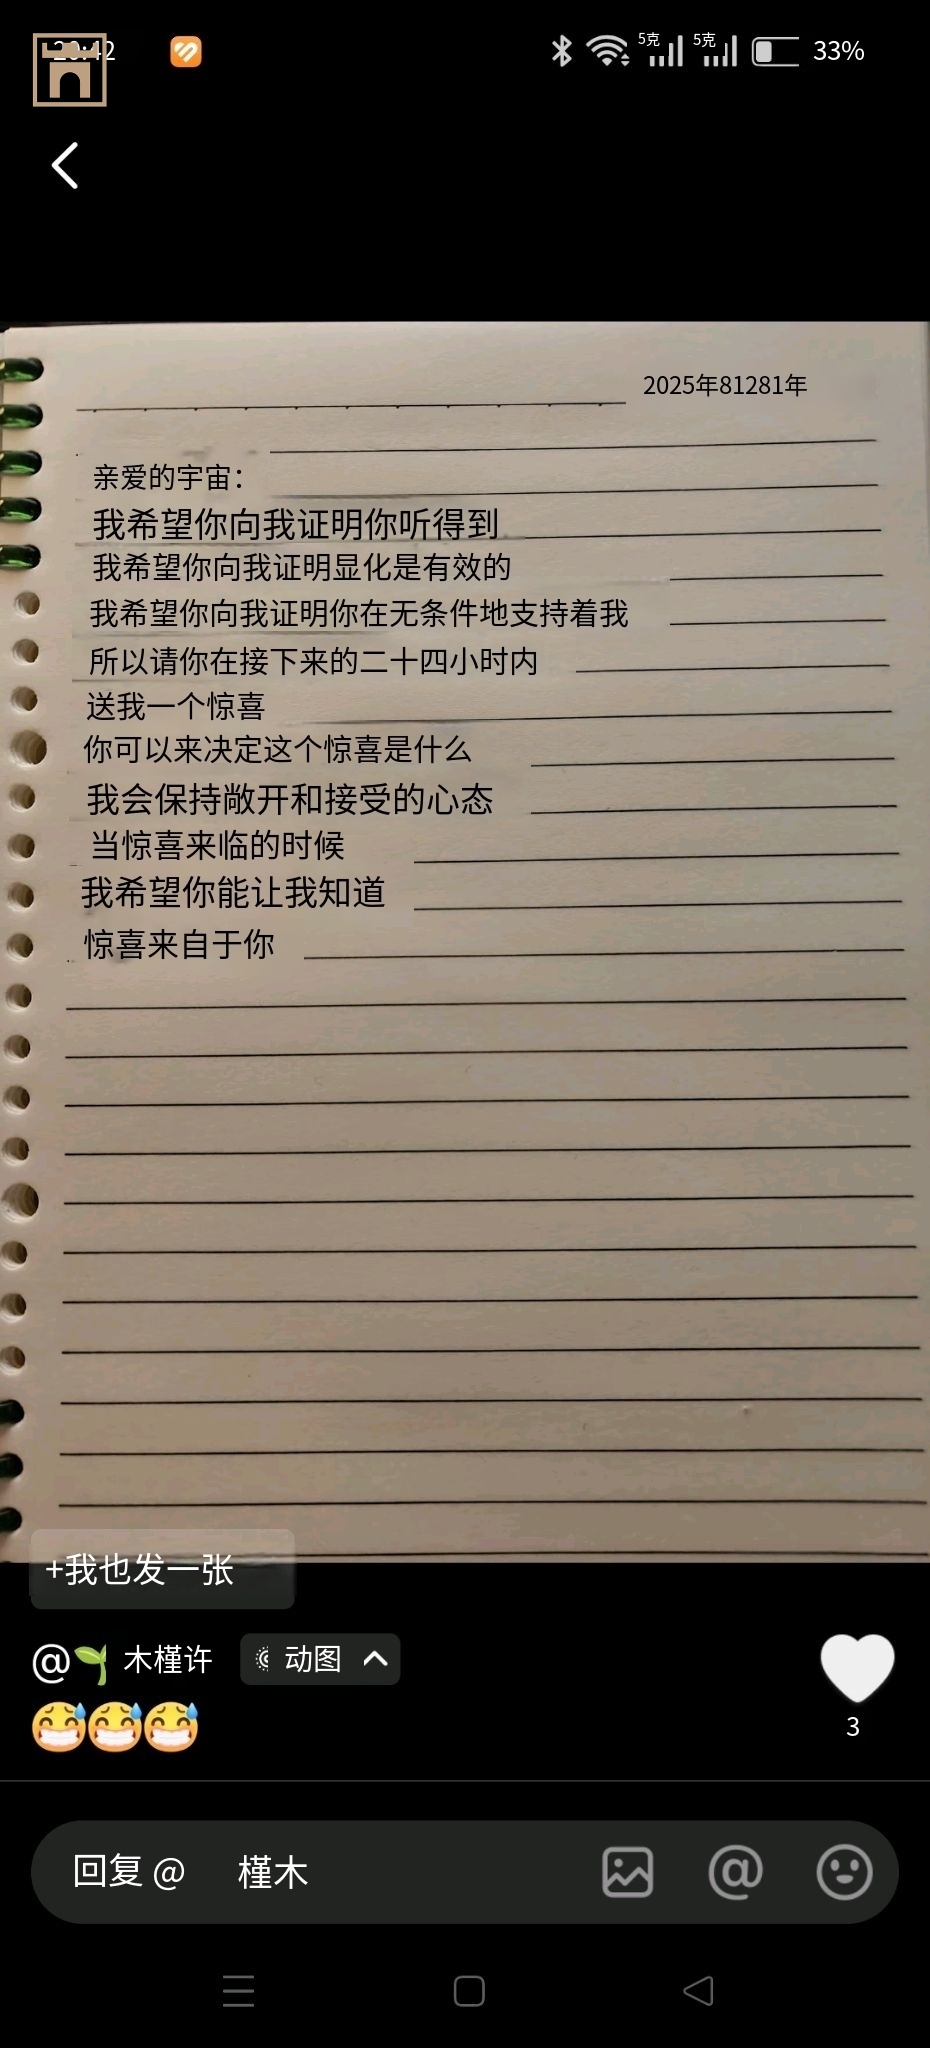 20:42
5克
5克
33%
2025年81281年
亲爱的宇宙：
我希望你向我证明你听得到
我希望你向我证明显化是有效的
我希望你向我证明你在无条件地支持着我
所以请你在接下来的二十四小时内
送我一个惊喜
你可以来决定这个惊喜是什么
我会保持敞开和接受的心态
当惊喜来临的时候
我希望你能让我知道
惊喜来自于你
+我也发一张
@🌱 木槿许
动图
😅😅😅
3
回复 @ 槿木